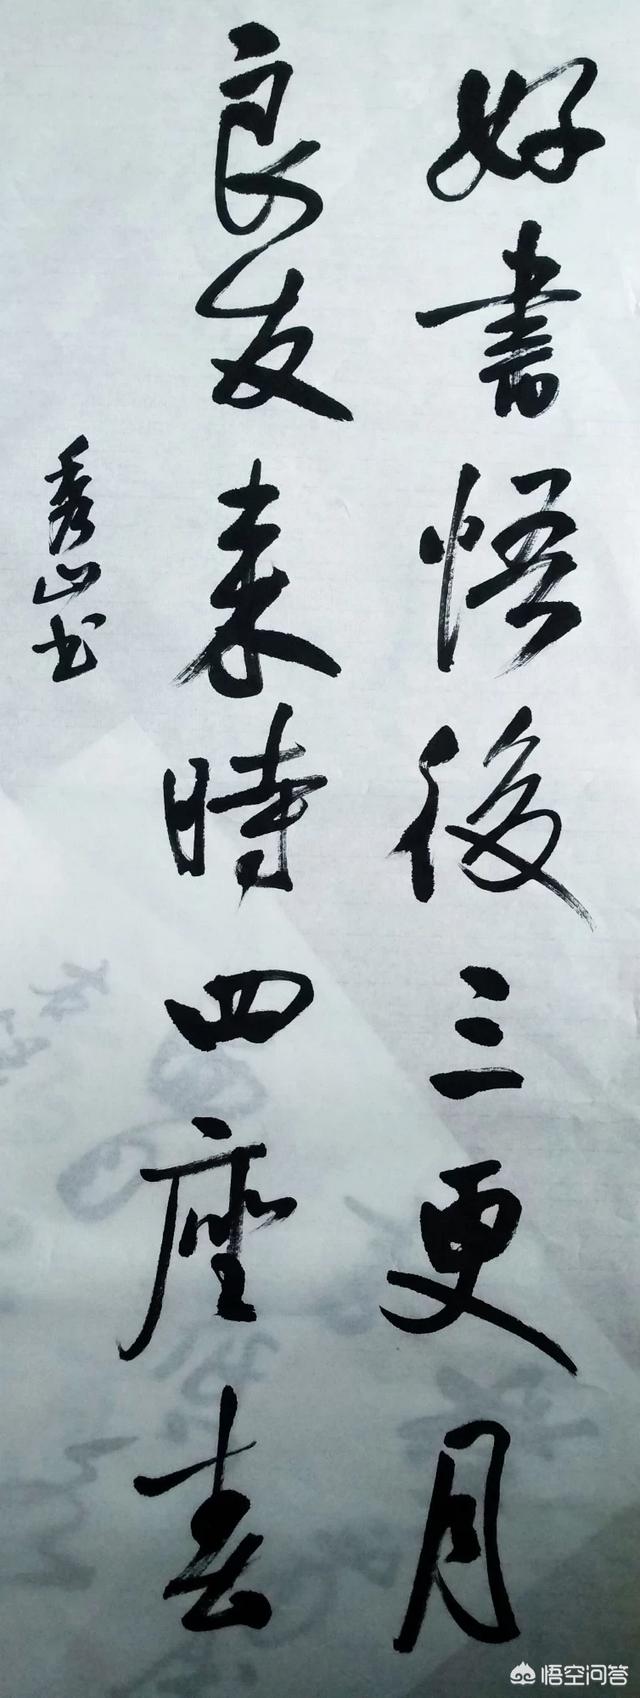 好書悟後三更月
良友来時四座春
秀山书
悟空问答